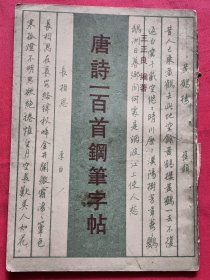 黃鶴樓 崔顥
昔人已乘黃鶴去此地空餘黃鶴樓黃鶴一去不復
返白雲千載空悠悠晴川歷歷漢陽樹芳草萋萋鸚
鵡洲日暮鄉關何處是煙波江上使人愁
王正良 編著
唐詩一百首鋼筆字帖
長相思 李白
長相思在長安絡緯秋啼金井闌微霜淒淒簟色
寒孤燈不明思欲絕卷帷望月空長歎美人如花